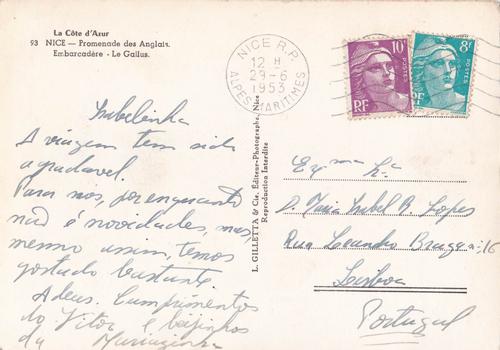 La Côte d'Azur
93 NICE — Promenade des Anglais.
Embarcadère - Le Gallus.
NICE R.P.
12 H
29-6
1953
ALPES MARITIMES
10F
POSTES
RF
8F
POSTES
RF
L. GILLETTA & Cie, Éditeur-Photographe, Nice
Reproduction Interdite
Isabelinha
A viagem tem sido
agradavel.
Para nós, por enquanto
não é novidades, mas,
mesmo assim, temos
gostado bastante.
Adeus. Cumprimentos
do Vitor e beijinhos
da
Exma
D. Maria Isabel B. Lopes
Rua Leandro Braga 16
Lisboa
Portugal